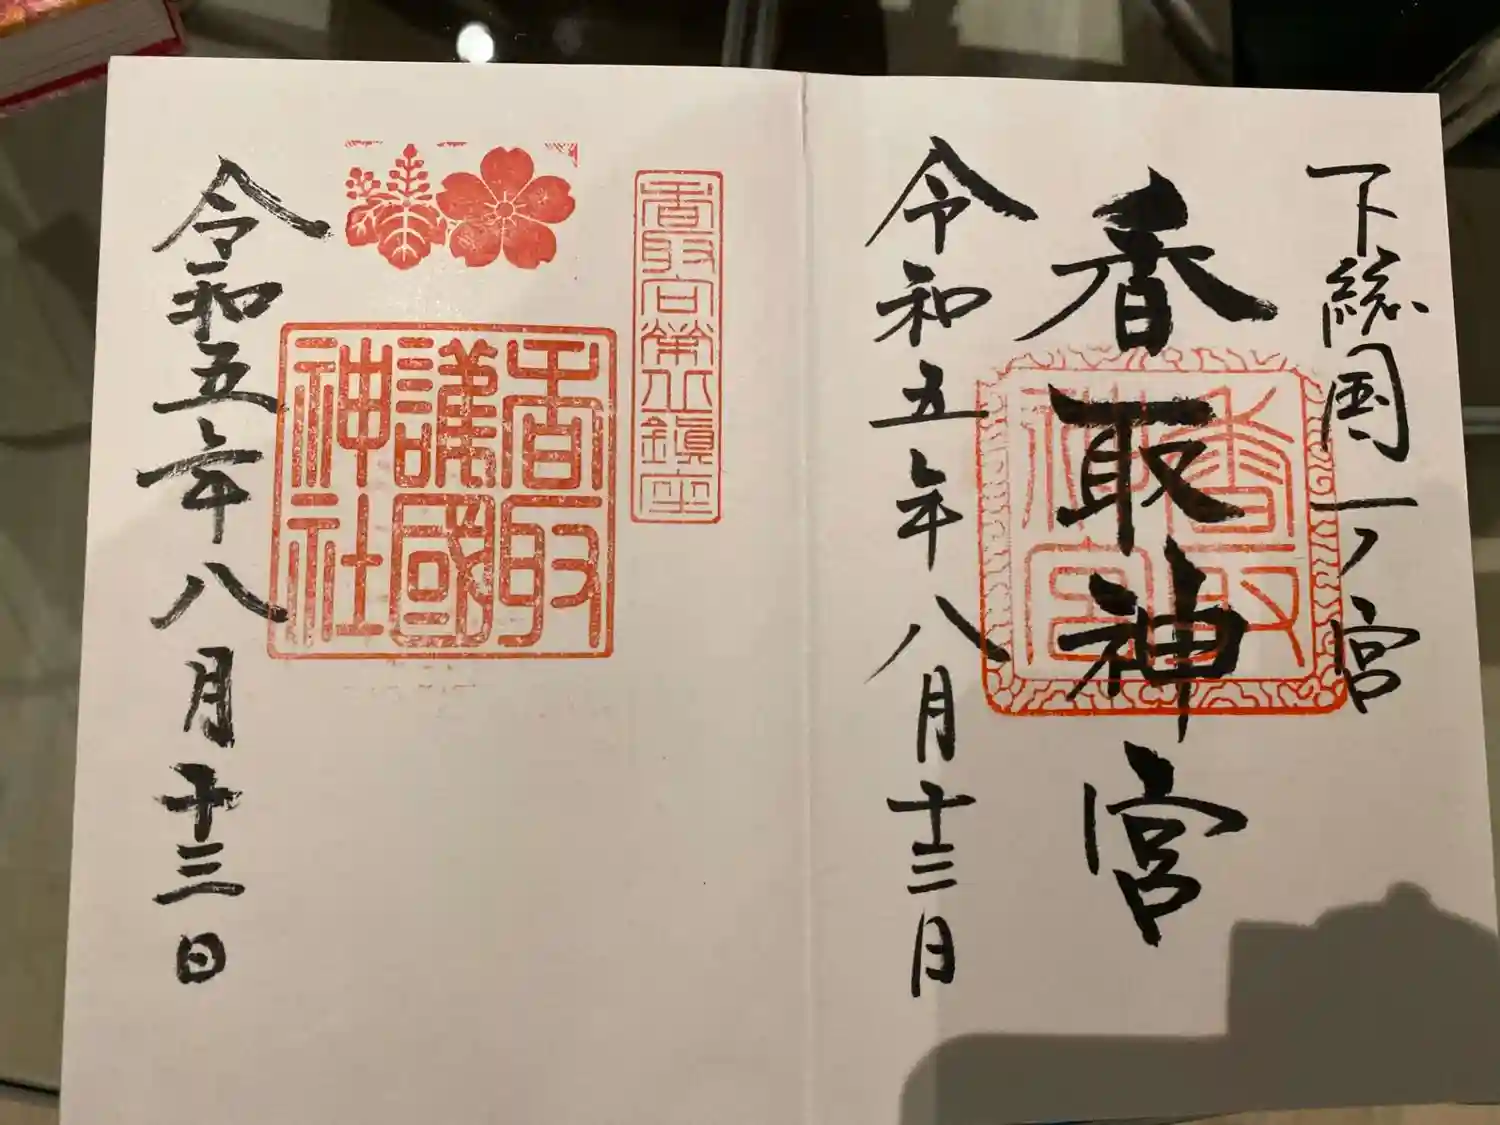 下総国一ノ宮
香取神宮
香取神宮
令和五年八月十三日
香取宮第一鎮座
香取護國神社
令和五年八月十三日